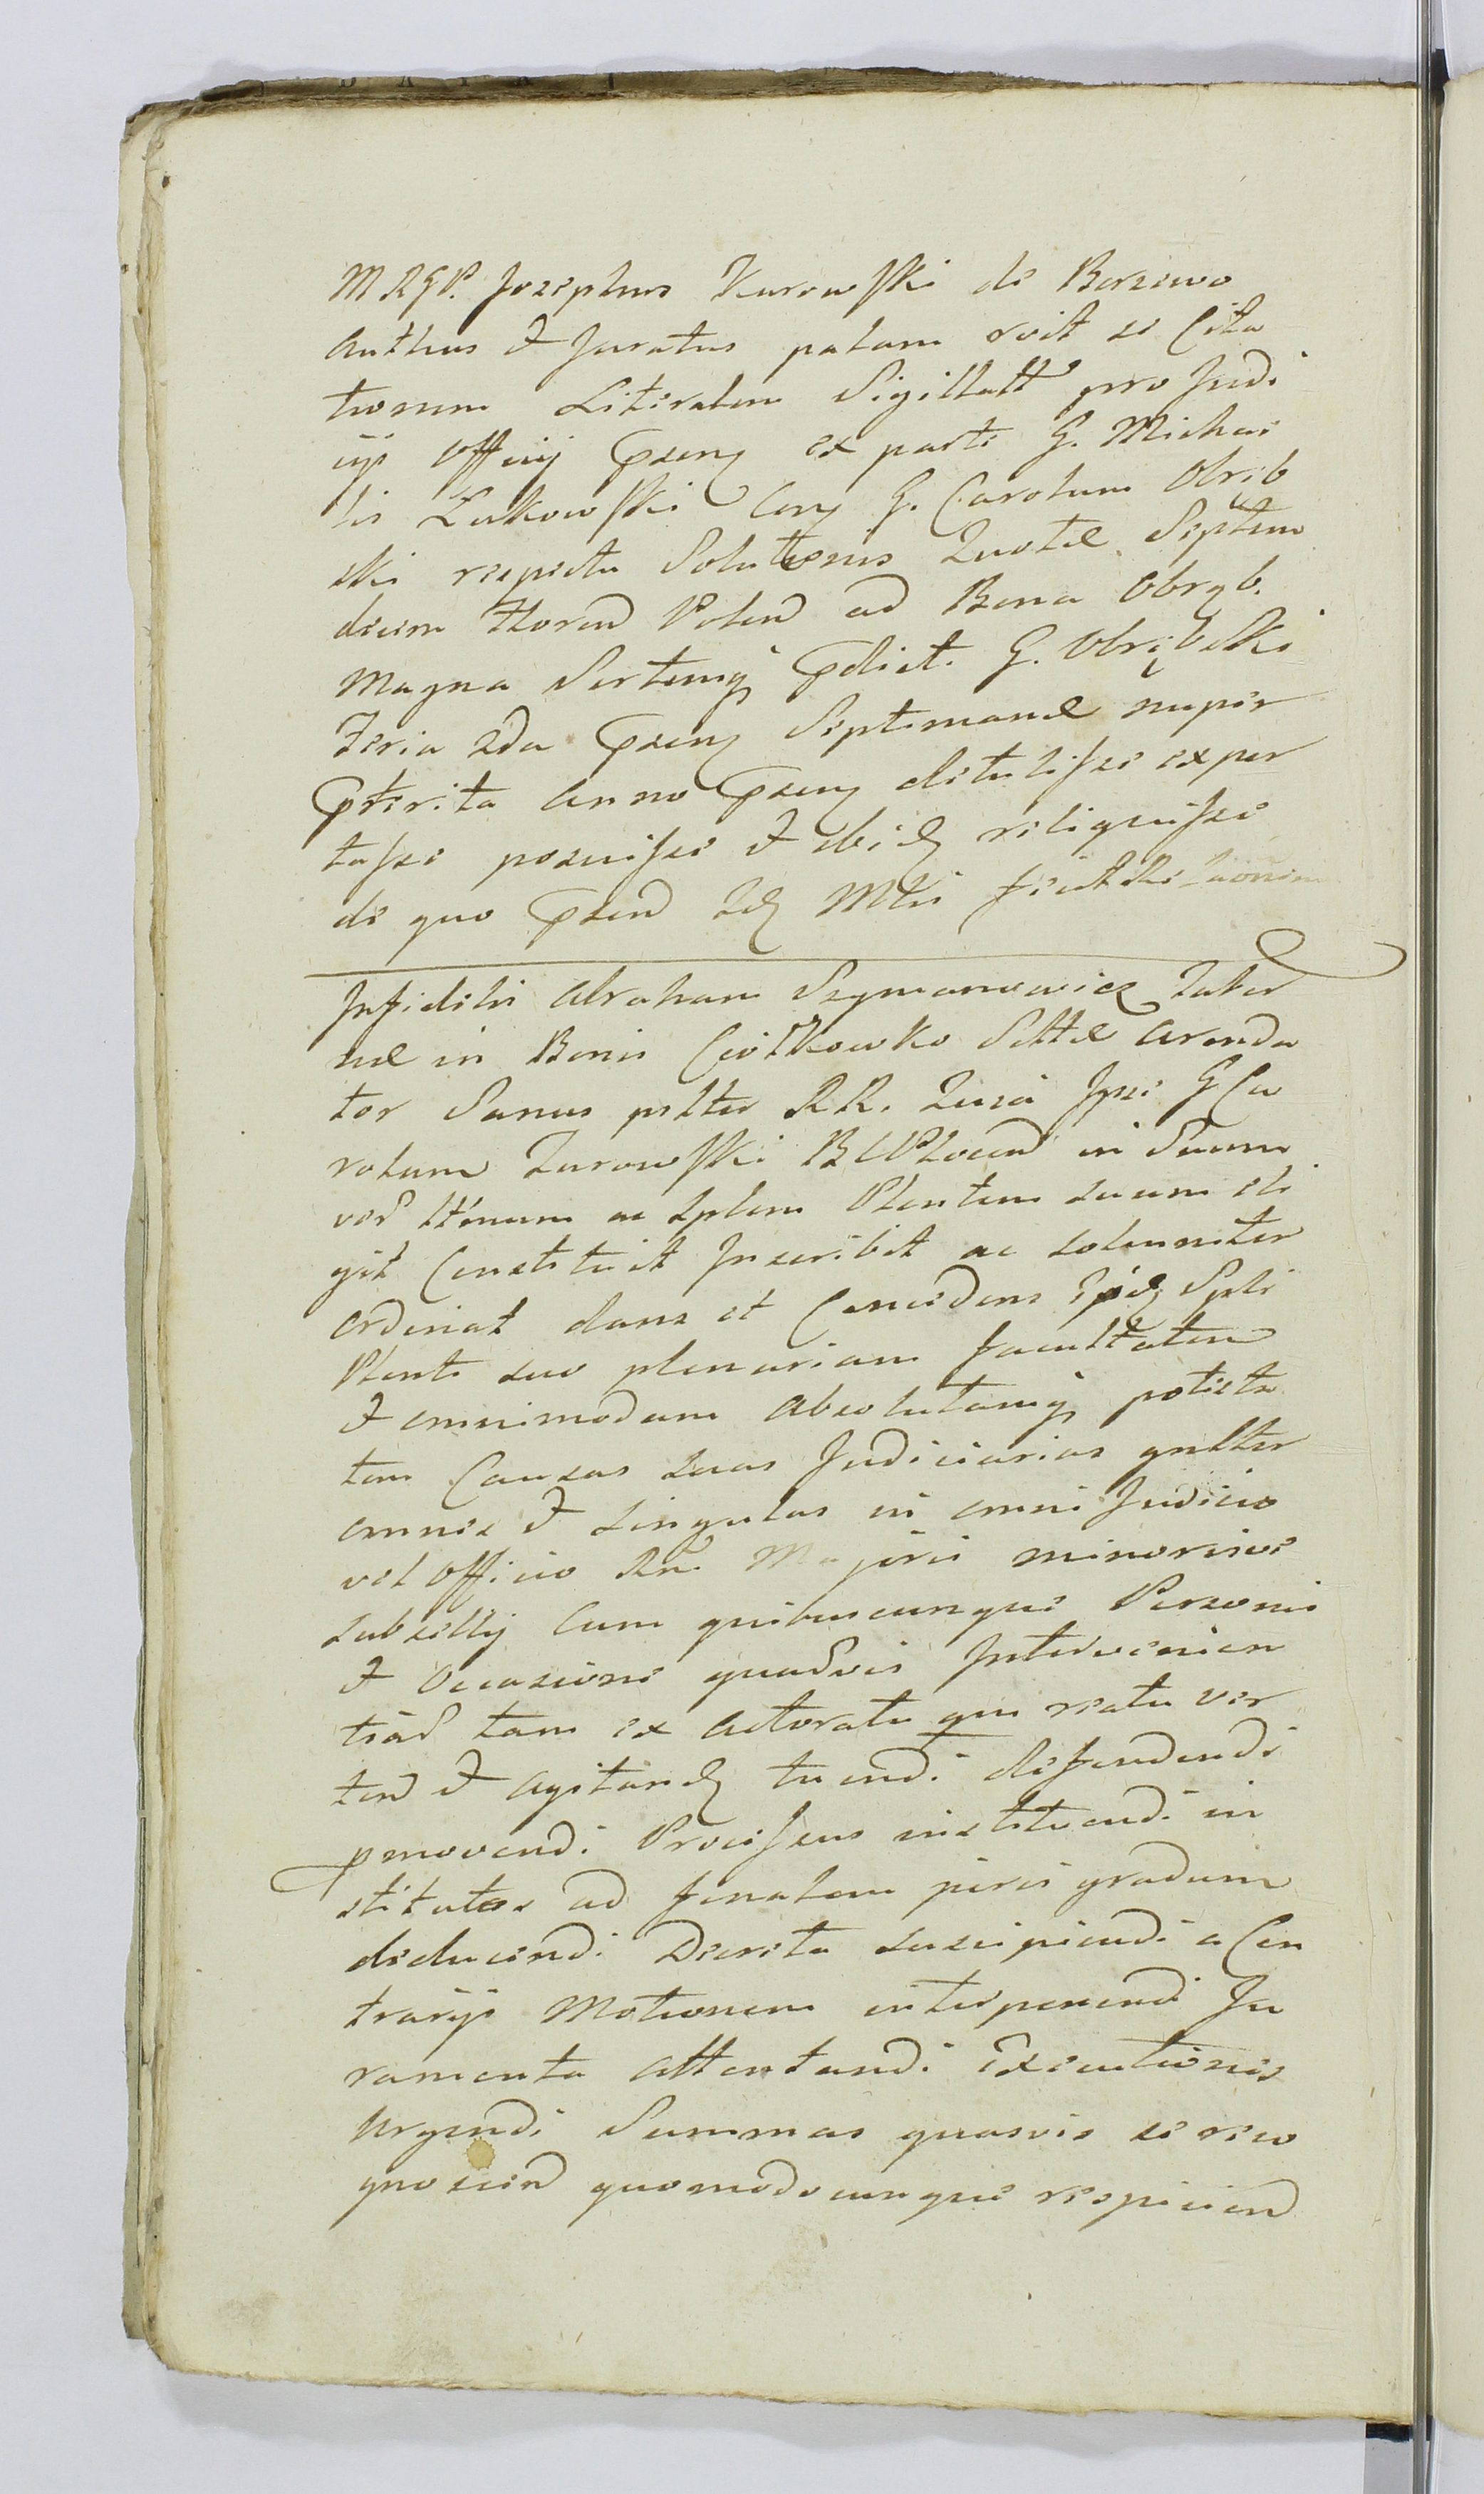 MRGP. Josephus Kurowski de Borzewo
Authus et Juratus palam rvit se Cita
tionem Literalem Sigillatt pro Judi
cijs Officij Psenq ex parte G. Michae
lis Lukowski Conq G. Carolum Obręb
ski respectu Solutionis Quotæ Septem
decim flloreno Polono ad Bona Obręb.
Magna Sortemq Pdict. G. Obrębski
Feria 2da Psenq Septimanæ nuper
Pterita anno Psenq detulisse expor
tasse posuisse et ibidq reliquisse
de quo Pseno Idq Mtri fecit Re laōnem
Infidelis Abraham Szymanowicz Taber
næ in Bonis Ciółkowko Sittæ Arenda
tor Sanus pnltter RR. Quia Ipse G Ca
rolum Zurowski BCPlocen in Suum
ver Ittimum ac Splem Plentem suum eli
git Constituit Inscribit ac solenniter
ordinat dans et Concedens Eidq Spli
Plenti suo plenariam facultatem
et omnimodam absolutamq potesta
tem Causas suas Judiciarias gnltter
omnes et singulas in omni Judicio
vel Officio Rn. Majoris minorisve
subsellij Cum quibuscunque Personis
et Occasione quadvis Intervenien
tiar tam ex actoratu qm reatu ver
ten et agitandq tuendi defendendi
pmovendi Processus instituendi in
stitutos ad finalem juris gradum
deducendi Decreta suscipiendi a Con
trarijs Motionem interponendi Ju
ramenta attentandi Executiones
Urgendi Summas quasvis se reco
gnoscen quomodocunque respicien